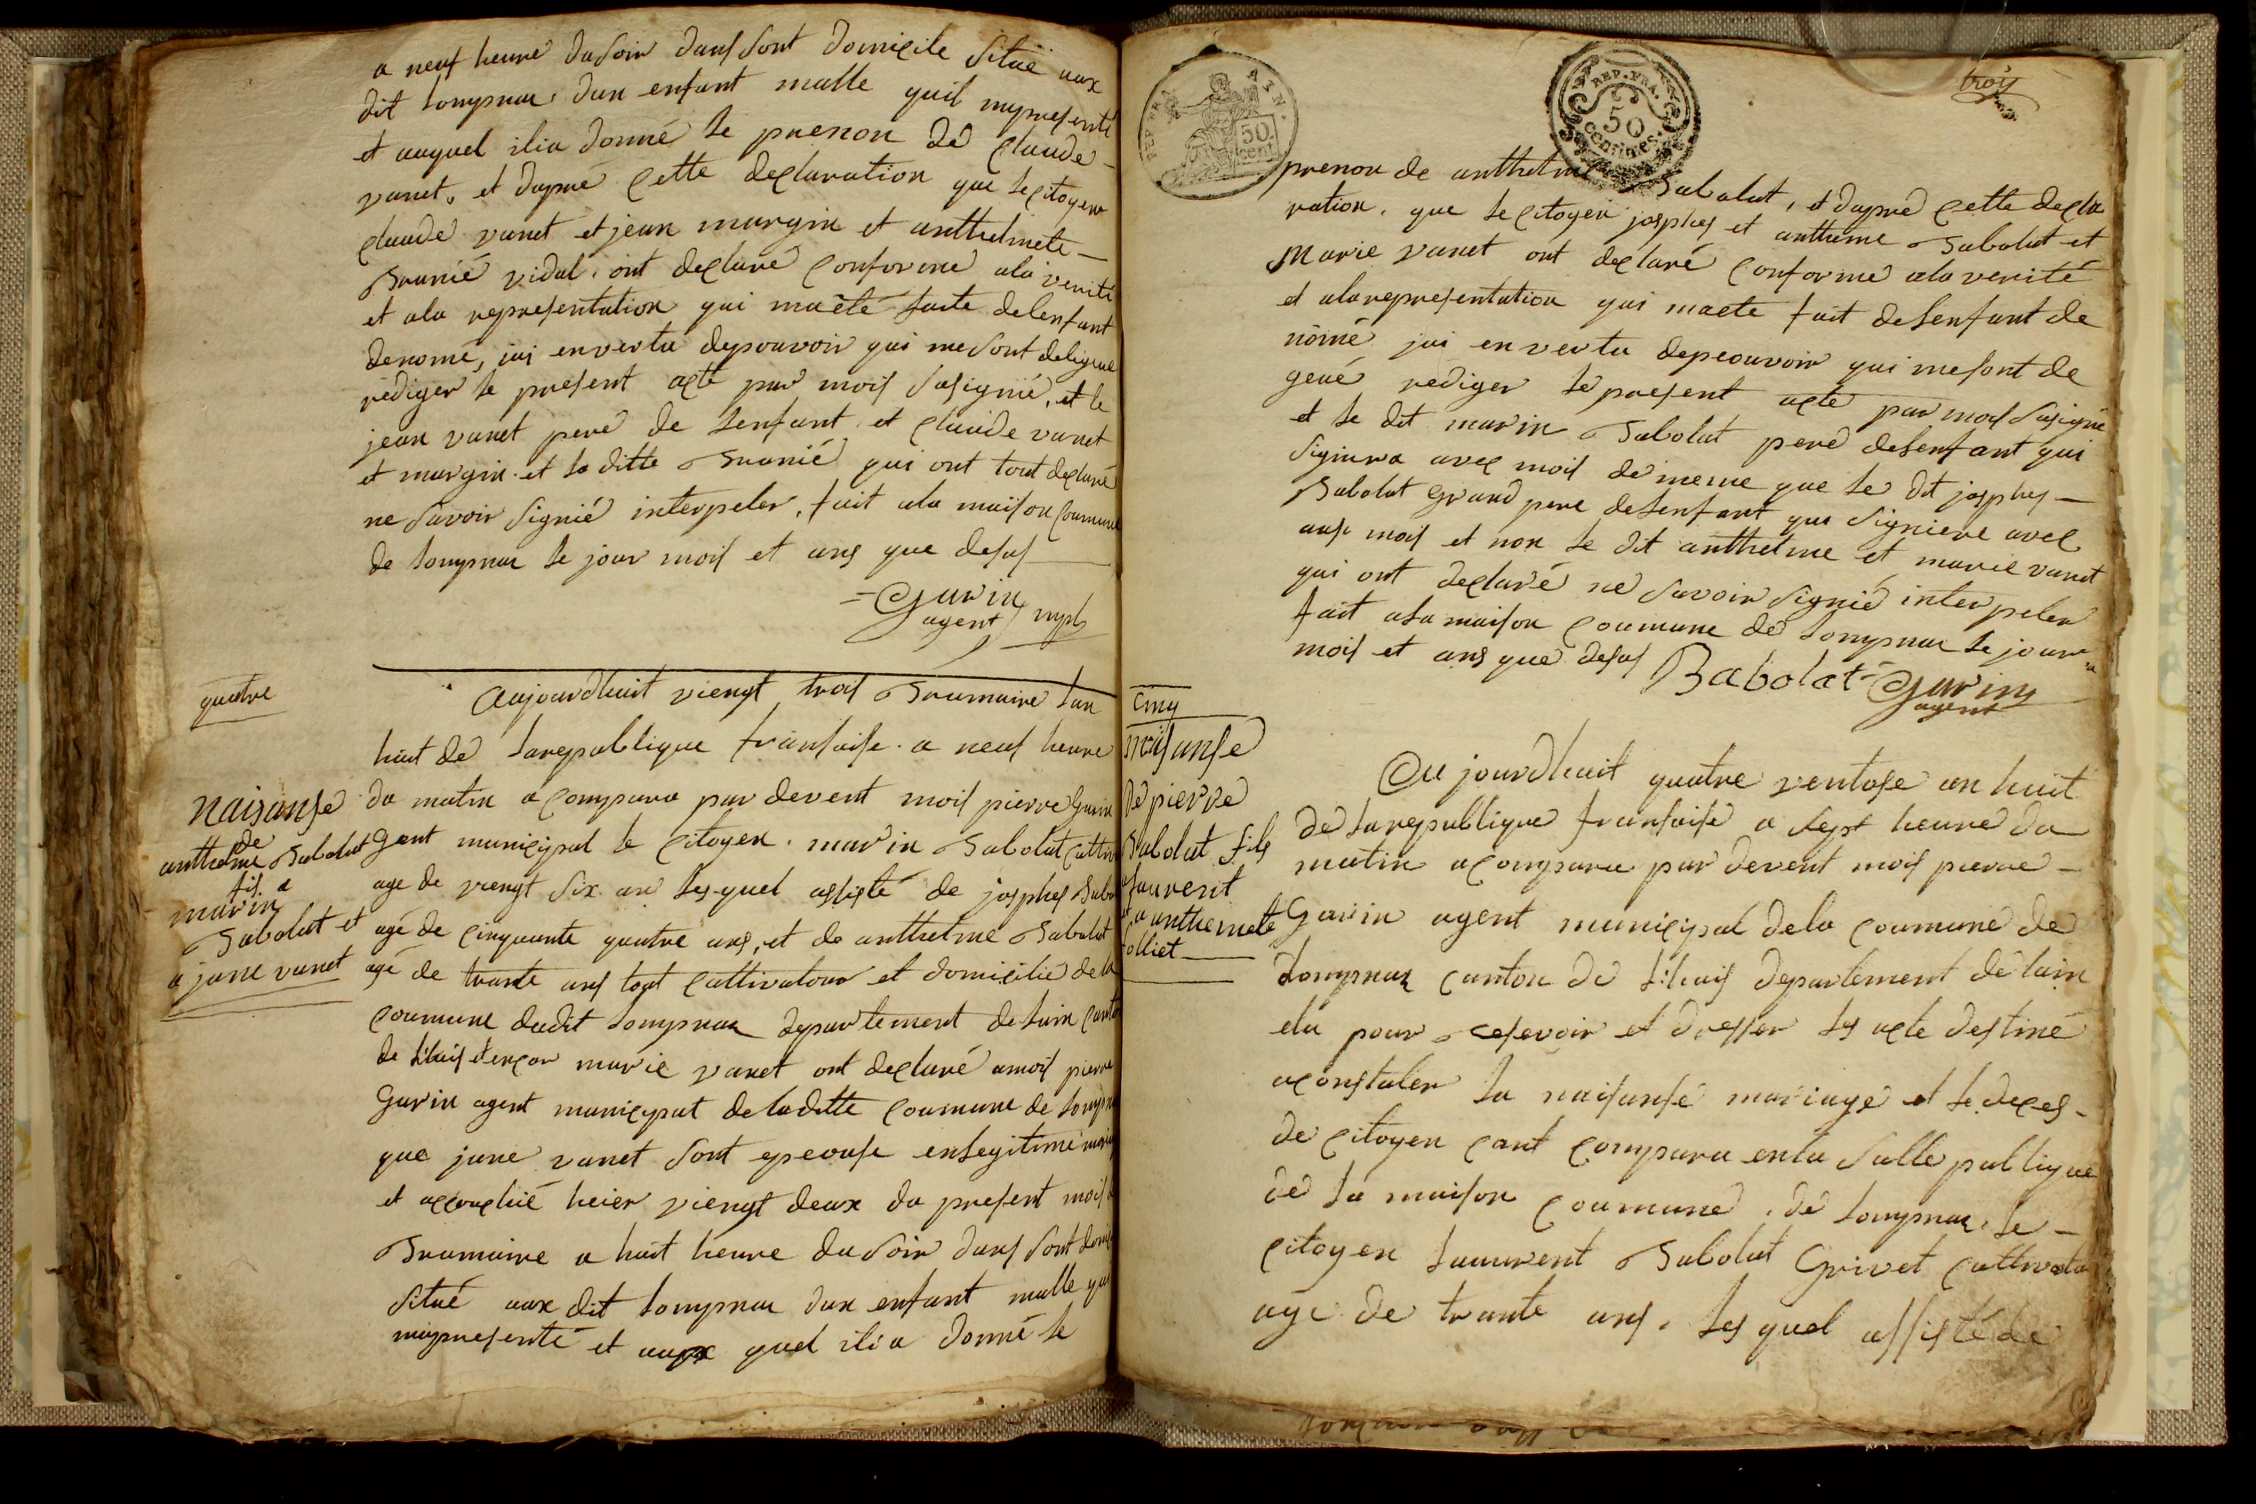 a neuf heure du soir dans sont domicile situé aux
dit Lompnaz dun enfant malle quil mypresenté
et auquel ilia donné le prenon de Claude
vanet, et dapré cette declaration que le citoyen
claude vanet et jean margin et anthelmete
Brunié vidal, ont declaré conforme ala verité
et ala representation qui maété faite delenfant
denomé, jai envertu depouvoir qui mesont delegué
rediger le present acte par mois susignié, et le
jean vanet peré de lenfant et claude vanet
et margin et la ditte Brunié qui ont tout declaré
ne savoir signié interpeler, fait ala maison coumune
de Lompnaz le jour mois et ans que desus
Gurin
agent
quatre
Aujourdhuit viengt trois Brumaire lan
huit de larepublique fransaise a neuf heure
Naisanse
de
anthelme Babolat
fis a
marin
Babolat et
a jane vanet
du matin a comparu par devent mois pierre Gurin
gent municipal le citoyen marin Babolat cattiv
age de viengt six an lesquel assisté de josphes Babo
agé de cinquante quatre ans, et de anthelme Babolat
agé de trante ans tout cattivatour et domicilié de la
coumune dudit Lompnaz departement de lain canto
de Lhuis et encor marie vanet ont declaré amois pierre
Gurin agent municipal de laditte coumune de Lompn
que jane vanet sont epeouse enlegitime
et accouchié heier viengt deux du present mois
Brumaire a huit heure du soir dans sont
situé aux dit Lompnaz dun enfant malle
mypresenté et aux quel ilia donné le
trois
REP. FRA.
50
cent
AIN.
REP. FRA.
50
centimes
prenon de anthelme Babolat, et dapré cette decla
ration, que le citoyen josphes et anthelme Babolat et
Marie vanet ont declaré conforme ala verité
et alarepresentation qui maété fait delenfant de
nomé jai en vertu depeouvoir qui mesont de
gené rediger le present acte par mois susigné
et le dit marin Babolat peré delenfant qui
signiera avec mois de meme que le dit josphes
Babolat grand pere delenfant qui signiere avec
ausi mois et non le dit anthelme et marie vanet
qui ont declaré ne savoir signié interpeler
fait ala maison coumune de Lompnaz le jour
mois et ans que desus Babolat Gurin
agent
cinq
Naisanse
de pierre
Babolat fils
a laurent
et a anthemete
folliet
Au jourdhuit quatre ventose an huit
de larepublique fransaise a sept heure du
matin acomparu par devent mois pierre
Gurin agent municipal dela coumune de
Lompnaz canton de Lhuis departement de lain
elu pour recesevoir et dresser les acte destiné
aconstater la naisanse mariage et le deces
de citoyen cant comparu enla salle publique
de la maison coumune de Lompnaz, le
citoyen Laurent Babolat Grivet cattivatou
agé de trante ans, les quel assisté de